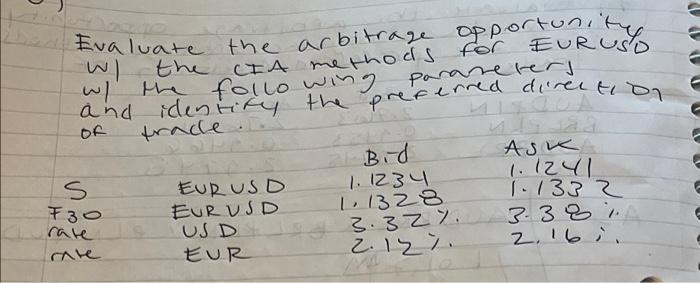 Evaluate the arbitrage opportunity
w/ the CIA methods for EURUSD
w/ the following parameters
and identify the preferred direction
of trade.
Bid ASK
S EURUSD 1.1234 1.1241
F30 EURUSD 1.1328 1.1332
rate USD 3.32%. 3.38%
rate EUR 2.12%. 2.16%.